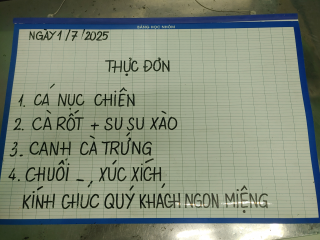 BẢNG HỌC NHÓM
NGÀY 1/7/2025
THỰC ĐƠN
1. CÁ NỤC CHIÊN
2. CÀ RỐT + SU SU XÀO
3. CANH CÀ TRỨNG
4. CHUỐI – , XÚC XÍCH
KÍNH CHÚC QUÝ KHÁCH NGON MIỆNG